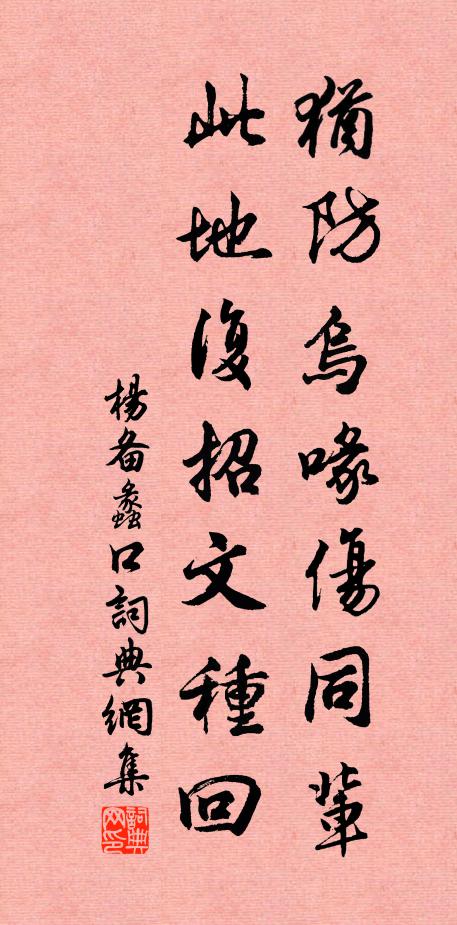 猶防烏喙傷同輩
此地復招文種回
楊备蠡口詞典網集
詞典网印